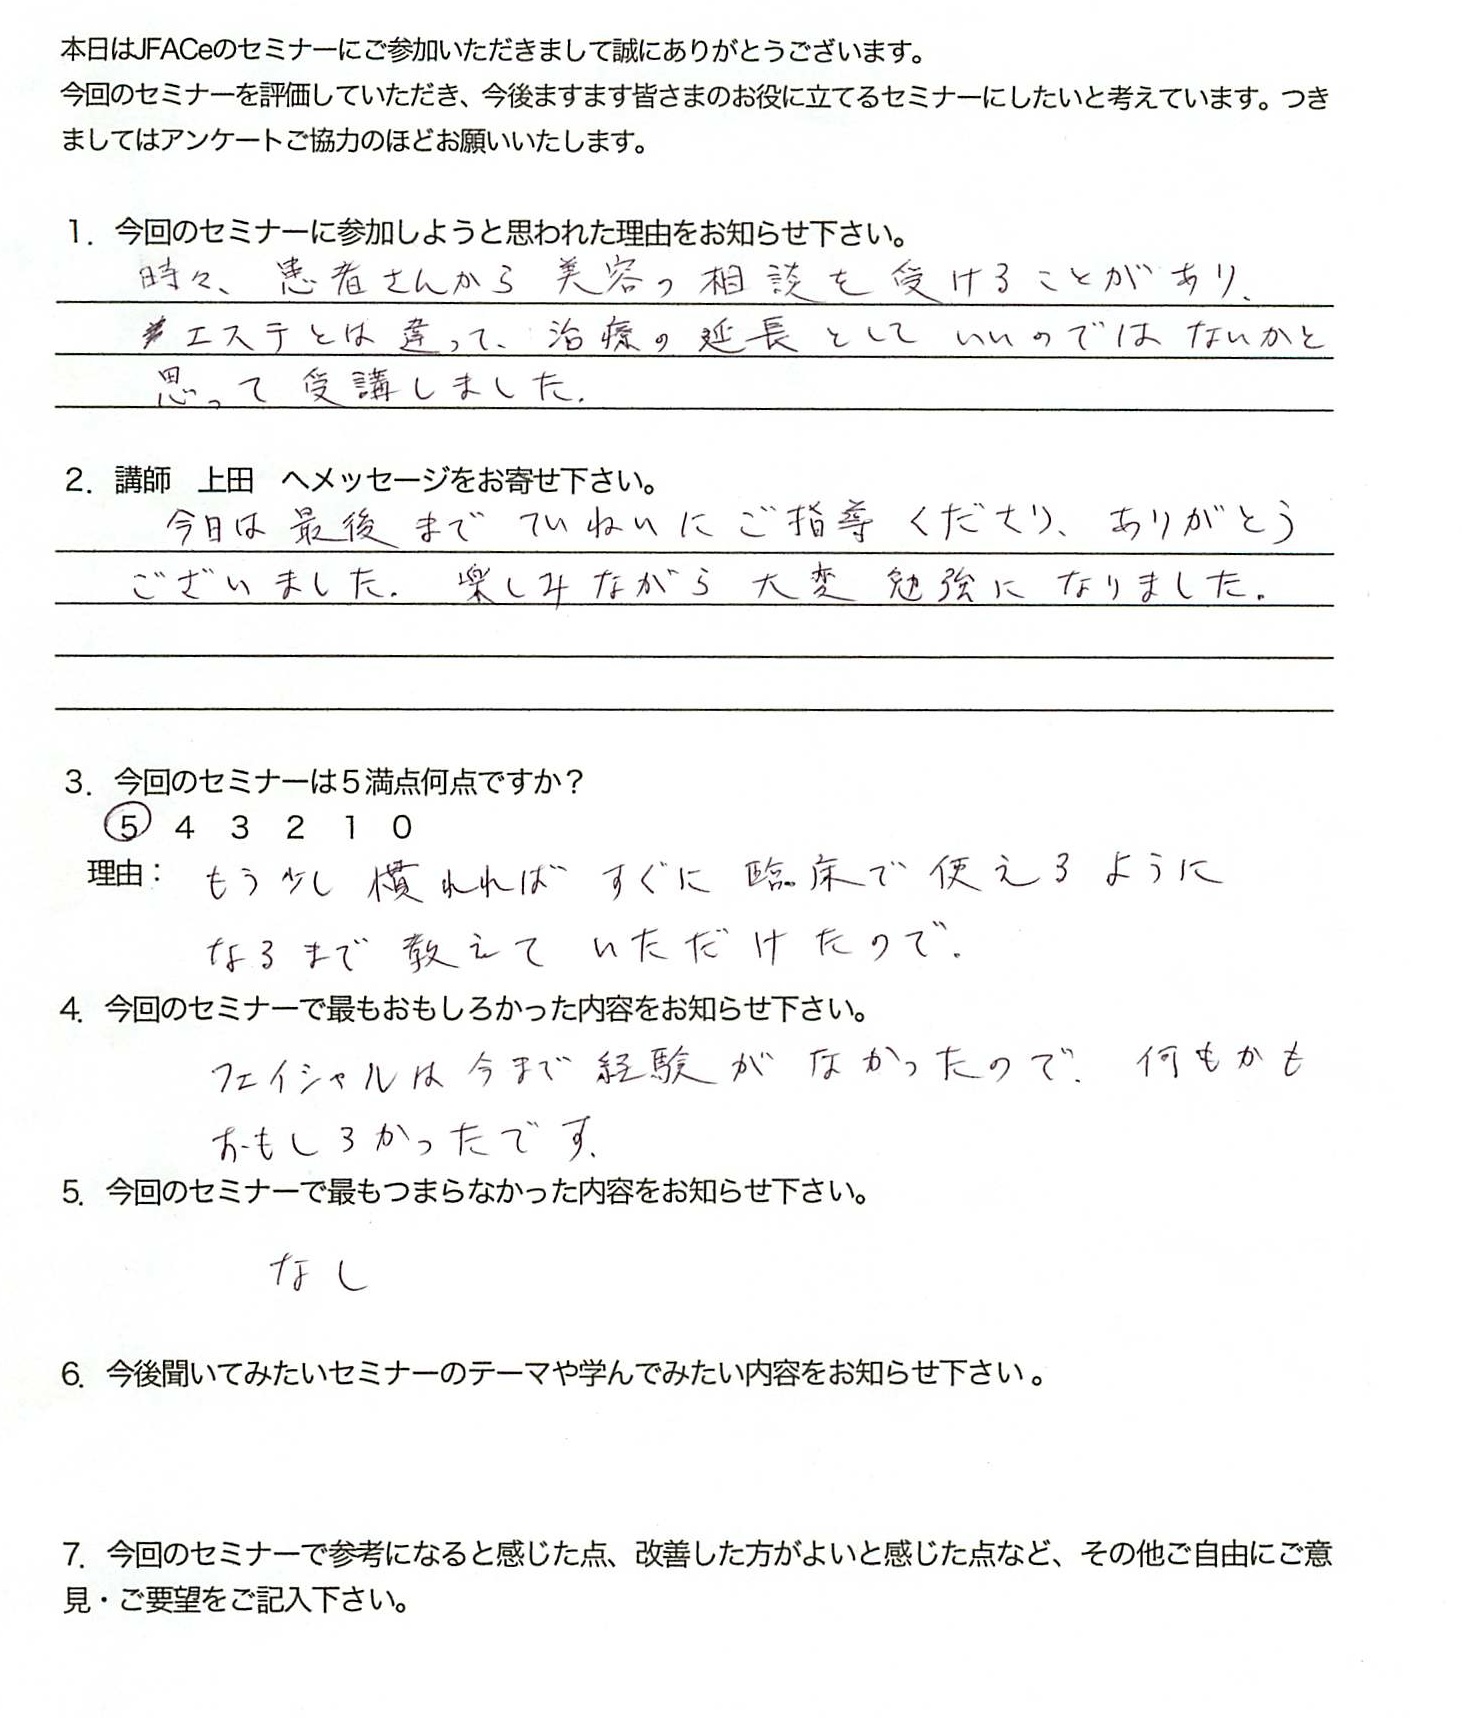 本日はJFACeのセミナーにご参加いただきまして誠にありがとうございます。
今回のセミナーを評価していただき、今後ますます皆さまのお役に立てるセミナーにしたいと考えています。つき
ましてはアンケートご協力のほどお願いいたします。
1．今回のセミナーに参加しようと思われた理由をお知らせ下さい。
時々、患者さんから美容の相談を受けることがあり、
エステとは違って、治療の延長としていいのではないかと
思って受講しました。
2．講師　上田　へメッセージをお寄せ下さい。
今日は最後までていねいにご指導くださり、ありがとう
ございました。楽しみながら大変勉強になりました。
3．今回のセミナーは５満点何点ですか？
5 4 3 2 1 0
理由：もう少し慣れればすぐに臨床で使えるように
なるまで教えていただけたので。
4．今回のセミナーで最もおもしろかった内容をお知らせ下さい。
フェイシャルは今まで経験がなかったので、何もかも
おもしろかったです。
5．今回のセミナーで最もつまらなかった内容をお知らせ下さい。
なし
6．今後聞いてみたいセミナーのテーマや学んでみたい内容をお知らせ下さい。
7．今回のセミナーで参考になると感じた点、改善した方がよいと感じた点など、その他ご自由にご意
見・ご要望をご記入下さい。